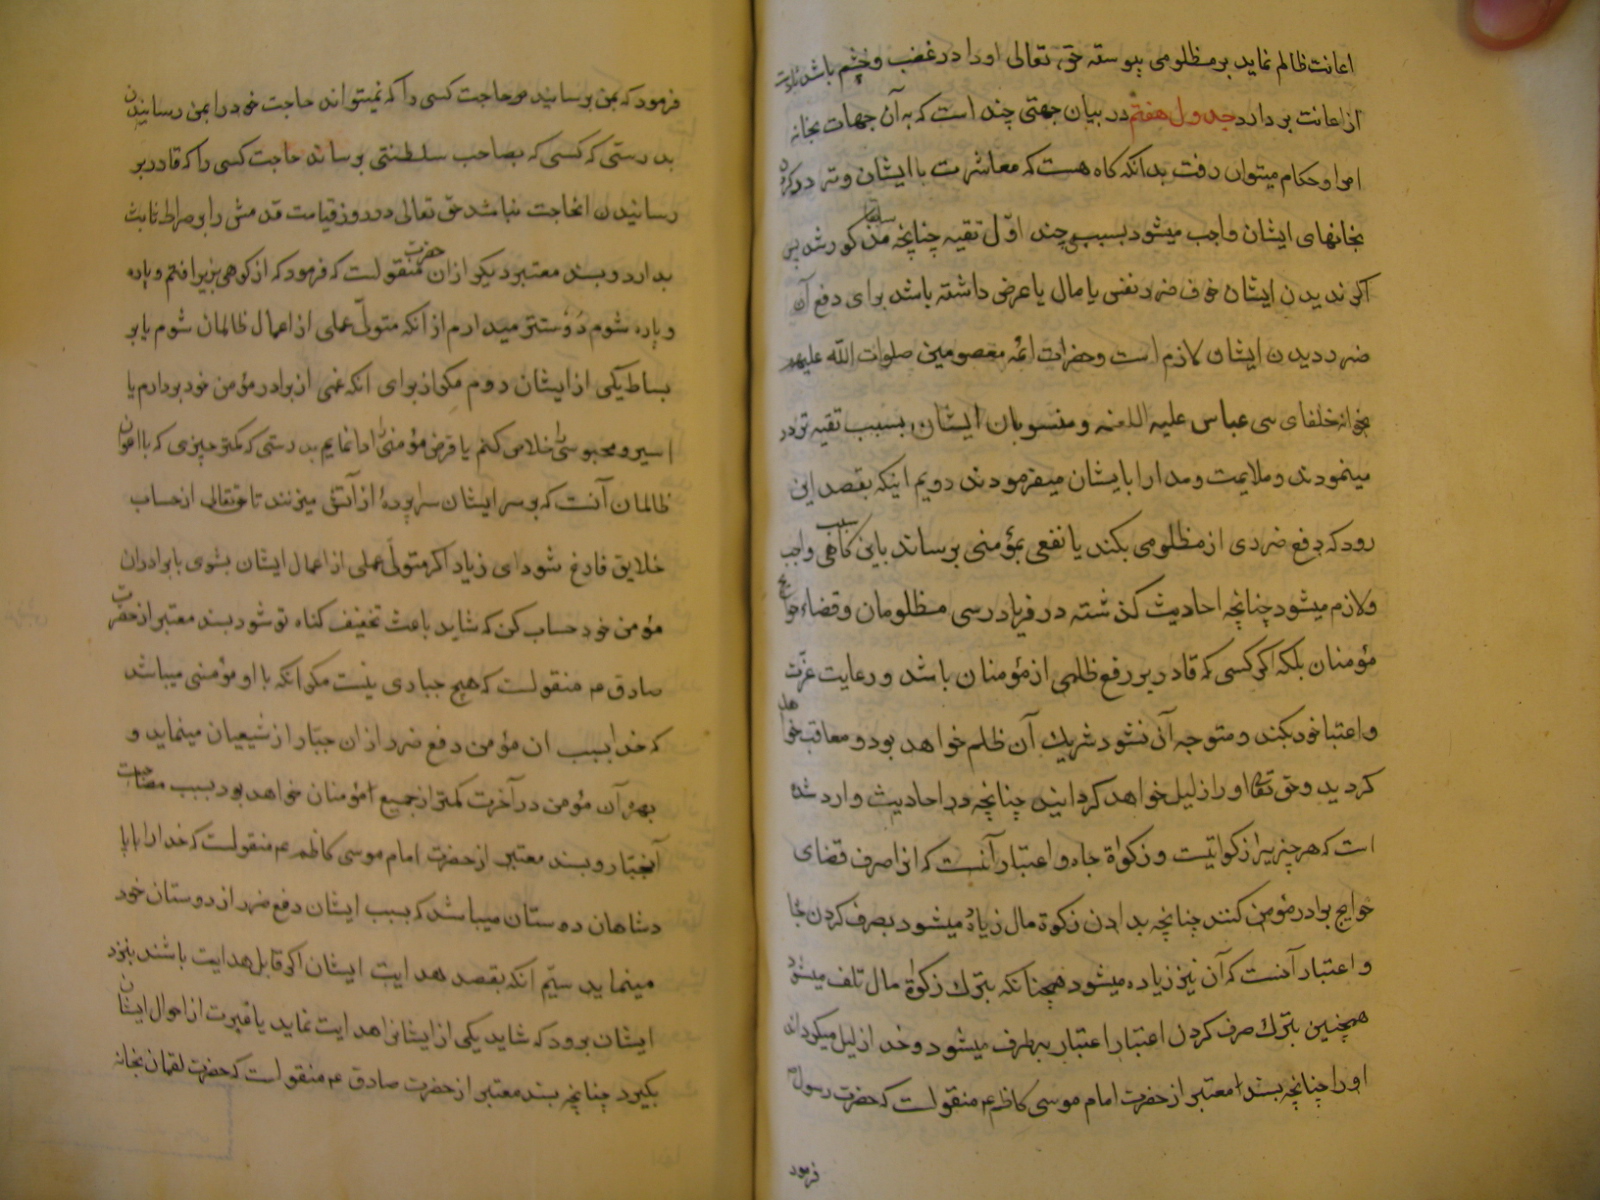 اعانت ظالم نماید بر مظلومی پیوسته حق تعالی او را در غضب و خشم باشد تا دست
از اعانت بردارد جدول هفتم در بیان جهتی چند است که به آن جهات بخانه
امرا و حکام میتوان رفت بدانکه کاه هست که معاشرت با ایشان و تردد کردن
بخانهای ایشان واجب میشود بسبب چند اوّل تقیه چنانچه سابقا مذکور شد پس
اکر ندیدن ایشان خوف ضرر نفس یا مال یا عرض داشته باشد برای دفع آن
ضرر دیدن ایشان لازم است و حضرات ائمه معصومین صلوات الله علیهم
بخانه خلفای بنی عباس علیه اللعنه و منسوبان ایشان بسبب تقیه تردد
مینمودند و ملایمت و مدارا با ایشان میفرمودند دویم اینکه بقصد این
رود که دفع ضرری از مظلومی بکند یا نفعی بمؤمنی برساند باین سبب کاهی واجب
و لازم میشود چنانچه احادیث کذشته در فریادرسی مظلومان و قضاء حوایج
مؤمنان بلکه اکر کسی که قادر بر رفع ظلمی از مؤمنان باشد و رعایت عزّت
و اعتبا خود بکند و متوجه آن نشود شریک آن ظلم خواهد بود و معاقب خواهد
کردید و حق تعالی او را ذلیل خواهد کردانید چنانچه در احادیث وارد شده
است که هر چیزیرا زکواتیست و زکواة جاه و اعتبار آنست که انرا صرف قضای
حوایج برادر مؤمن کنند چنانچه بدادن زکوة مال زیاد میشود بصرف کردن جا
و اعتبار آنست که آن نیز زیاده میشود همچنانکه بترک زکوة مال تلف میشود
همچنین بترک صرف کردن اعتبار اعتبار برطرف میشود و خدا ذلیل میکرداند
او را چنانچه بسند معتبر از حضرت امام موسی کاظم ع منقولست که حضرت رسول ص
فرمود
فرمود که بمن برسانید حاجت کسی را که نمیتواند حاجت خود را بمن رسانیدن
بدرستی که کسی که بصاحب سلطنتی برساند حاجت کسی را که قادر بر
رسانیدن انحاجت نباشد حق تعالی در روز قیامت قدمش را بر صراط ثابت
بدارد و بسند معتبر دیکر از ان حضرت منقولست که فرمود که از کوهی بزیر افتم و پاره
و پاره شوم دوستتر میدارم از آنکه متولّی عملی از اعمال ظالمان شوم یا بر
بساط یکی از ایشان روم مکر از برای آنکه غمی از برادر مؤمن خود بردارم یا
اسیر و محبوسی را خلاص کنم یا قرض مؤمنی را ادا نمایم بدرستی که کمتر چیزی که با اعوان
ظالمان آنست که بر سر ایشان سراپردهٔ از آتش میزنند تا حقتعالی از حساب
خلایق فارغ شود ای زیاد اکر متولّی عملی از اعمال ایشان بشوی با برادران
مؤمن خود حساب کن که شاید باعث تخفیف کناه تو شود بسند معتبر از حضرت
صادق ع منقولست که هیچ جباری نیست مکر آنکه با او مؤمنی میباشد
که خدا بسبب ان مؤمن دفع ضرر از ان جبّار از شیعیان مینماید و
بهرهٔ آن مؤمن در آخرت کمتر از جمیع مؤمنان خواهد بود بسبب مصاحبت
آنجبار و بسند معتبر از حضرت امام موسی کاظم ع منقولست که خدا را با پا
دشاهان دوستان میباشد که بسبب ایشان دفع ضرر از دوستان خود
مینماید سیّم آنکه بقصد هدایت ایشان اکر قابل هدایت باشند بنزد
ایشان برود که شاید یکی از ایشانرا هدایت نماید یا عبرت از احوال ایشان
بکیرد چنانچه بسند معتبر از حضرت صادق ع منقولست که حضرت لقمان بخانه